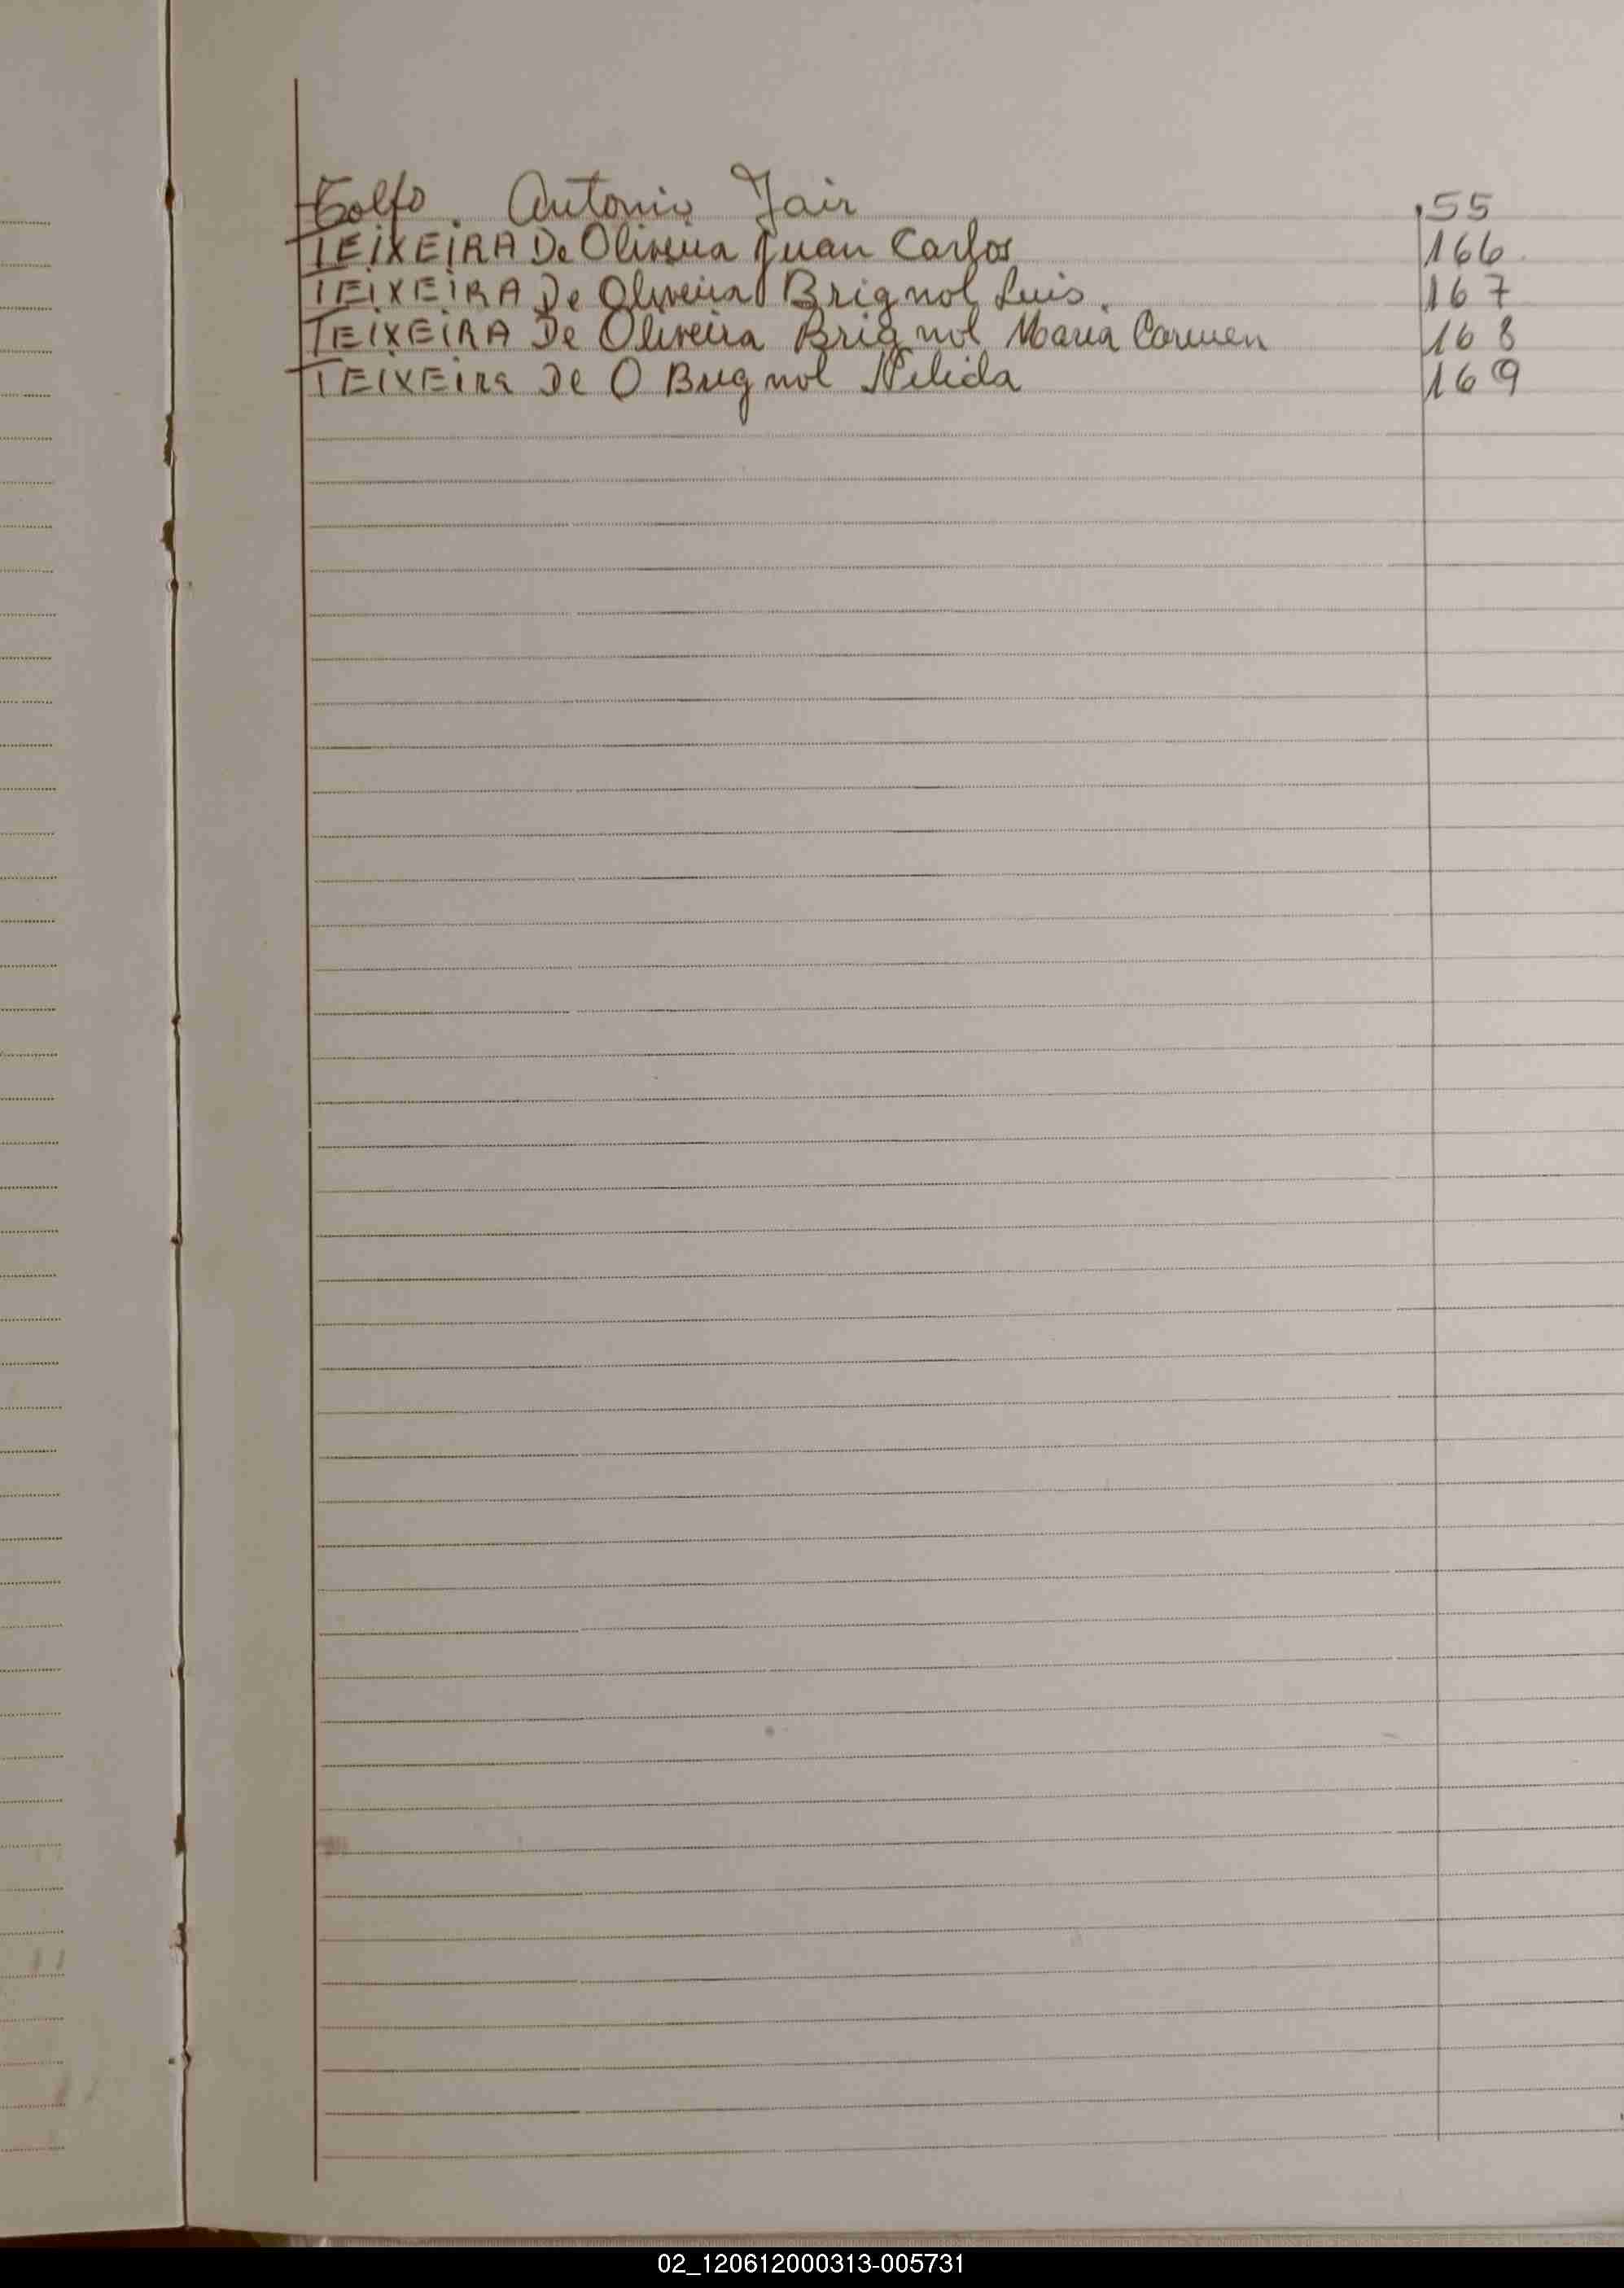 Golfo. Antonio Jair 55
TEIXEIRA De Oliveira Juan Carlos 166
TEIXEIRA De Oliveira Brignol Luis. 167
TEIXEIRA De Oliveira Brignol Maria Carmen 168
TEIXEIRA De O Brignol Nelida 169
02_120612000313-005731